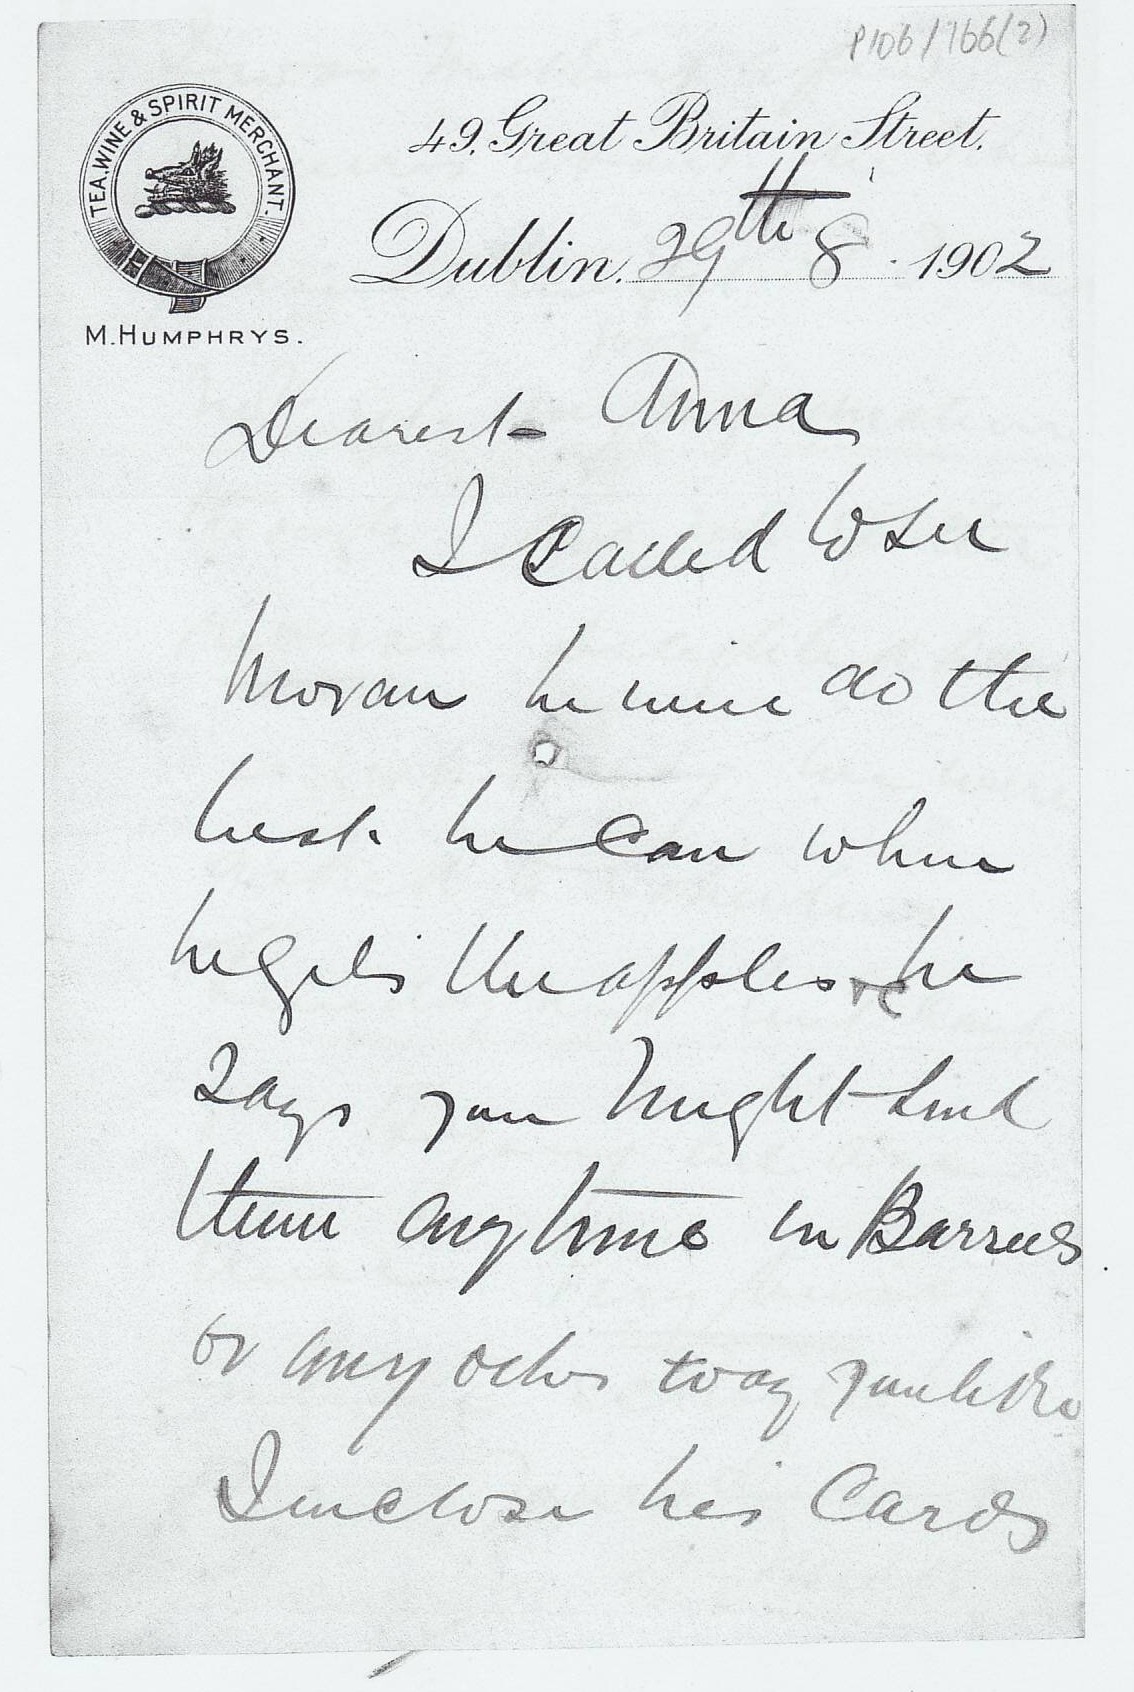 P106/766(2)
TEA. WINE & SPIRIT MERCHANT.
49, Great Britain Street.
Dublin. 29th 8 . 1902
M. HUMPHRYS.
Dearest Anna
I Called to see
Moran he will do the
best he Can when
he gets the apples he
says you might send
them anytime in Barrels
or any other way you like
I inclose his Cards